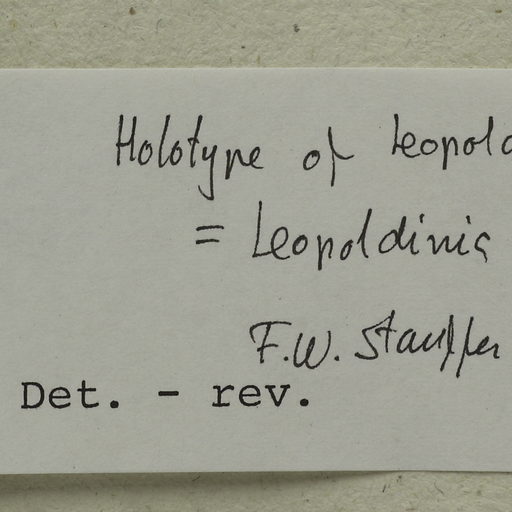 Holotype of Leopold
= Leopoldinia
F.W. Stauffer
Det. - rev.